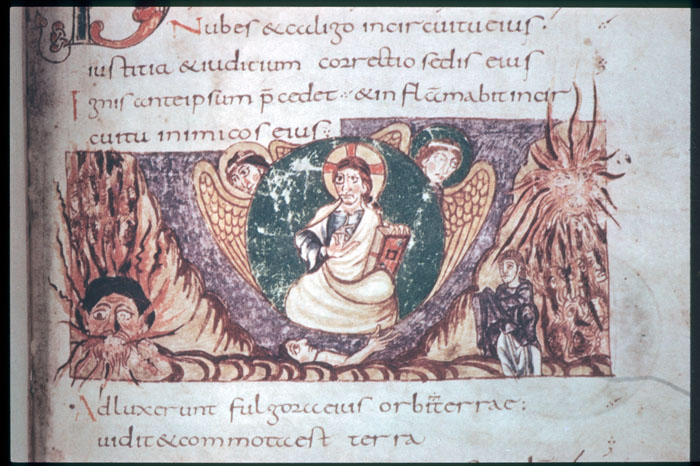 Nubes & caligo incircuitu eius.
iustitia & iudicium correctio sedis eius
Ignis anteipsum p̄cedet · & inflammabit incir
cuitu inimicos eius :
Adluxerunt fulgora eius orbi terrae :
uidit & commota est terra